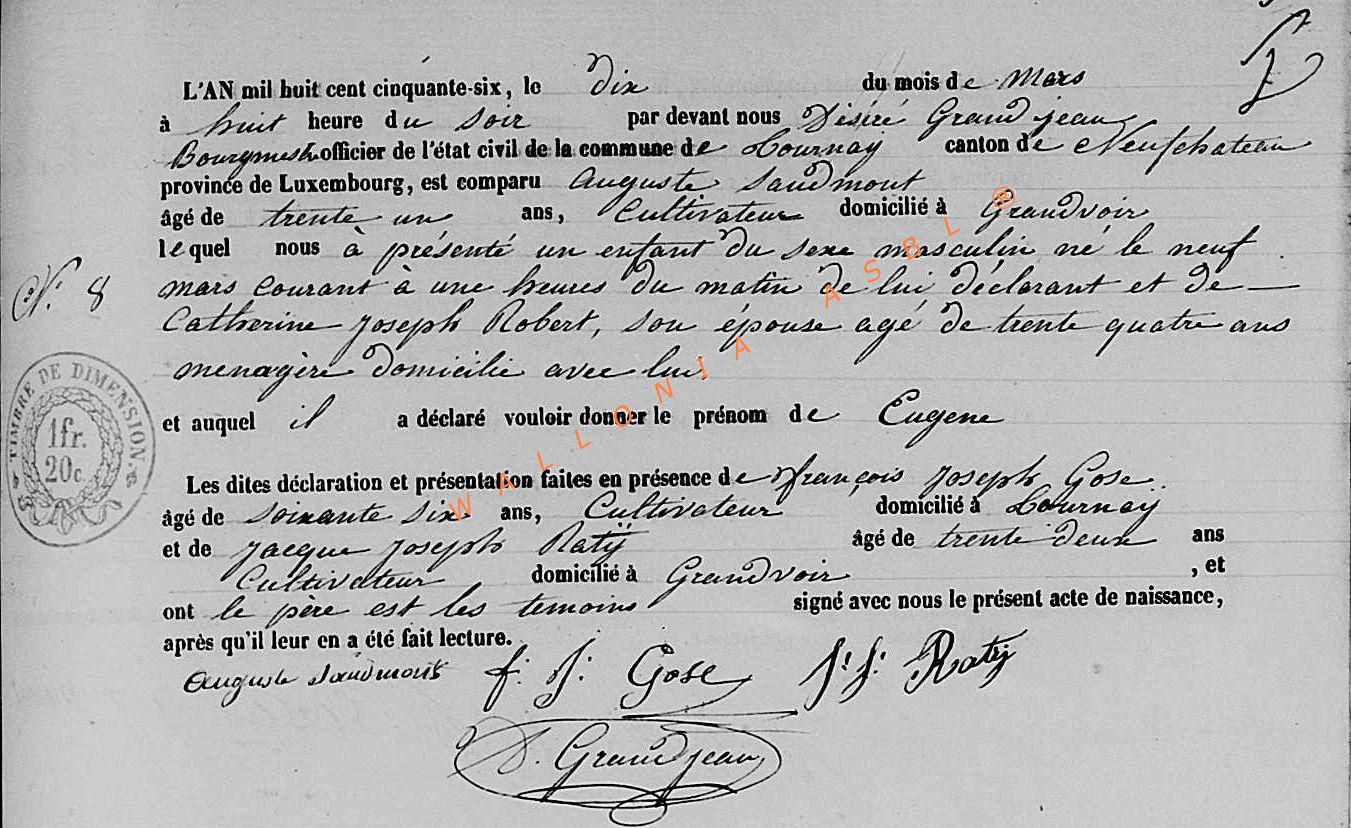 L'AN mil huit cent cinquante-six, le dix du mois de Mars
à huit heure du soir par devant nous Désiré Grandjean
Bourgmestre officier de l'état civil de la commune de Tournay canton de Neufchateau
province de Luxembourg, est comparu Auguste Saudmont
âgé de trente un ans, Cultivateur domicilié à Grandvoir
lequel nous à présenté un enfant du sexe masculin né le neuf
mars courant à une heures du matin de lui déclarant et de
Catherine Joseph Robert, son épouse agé de trente quatre ans
menagère domicilié avec lui
et auquel il a déclaré vouloir donner le prénom de Eugene
N° 8
TIMBRE DE DIMENSION
1fr.
20c.
Les dites déclaration et présentation faites en présence de françois Joseph Gose
âgé de soixante six ans, Cultivateur domicilié à Tournay
et de Jacque Joseph Ratÿ âgé de trente deux ans
Cultivateur domicilié à Grandvoir , et
ont le père est les temoins signé avec nous le présent acte de naissance,
après qu'il leur en a été fait lecture.
Auguste Saudmont f. J. Gose J. J. Ratÿ
D. Grandjean
WALLONIA ASBL ®